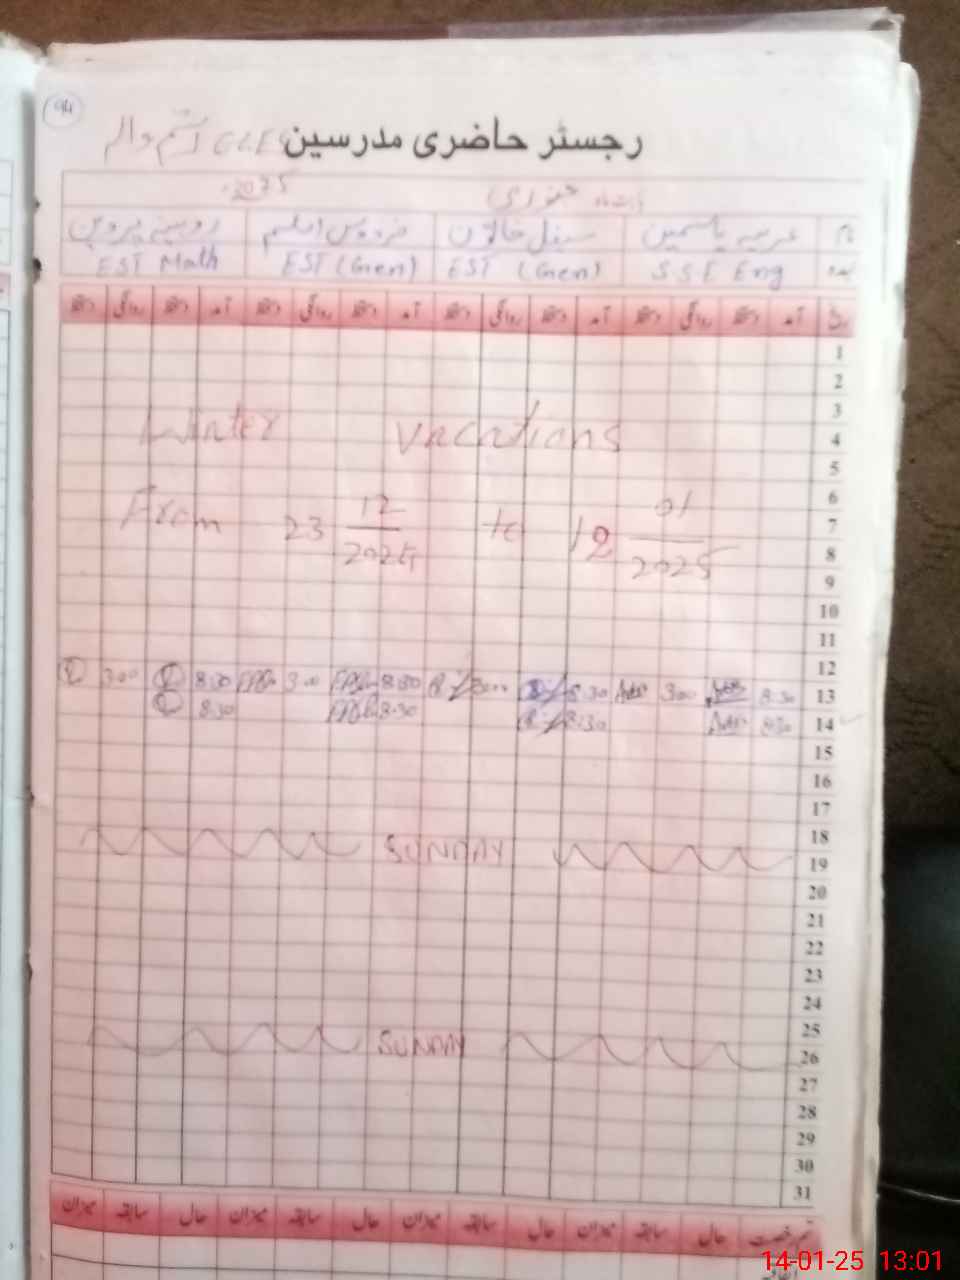 94
رجسٹر حاضری مدرسین
جنوری 2025
نام عربیہ یاسمین خاتون فردوس اسلم روبینہ پروین
عہدہ S.S.E Eng EST (Gen) EST (Gen) EST Math
آمد دستخط روانگی دستخط آمد دستخط روانگی دستخط آمد دستخط روانگی دستخط آمد دستخط روانگی دستخط
1
2
3
Winter vacations
4
5
6
From 23 12/2024 to 12 01/2025
7
8
9
10
11
12
3:00 8:30 3:00 8:30 3:00 8:30 3:00 8:30 13
8:30 8:30 8:30 8:30 14
15
16
17
18
SUNDAY 19
20
21
22
23
24
25
SUNDAY 26
27
28
29
30
31
قسم رخصت حال سابقہ میزان حال سابقہ میزان حال سابقہ میزان حال سابقہ میزان
14-01-25 13:01